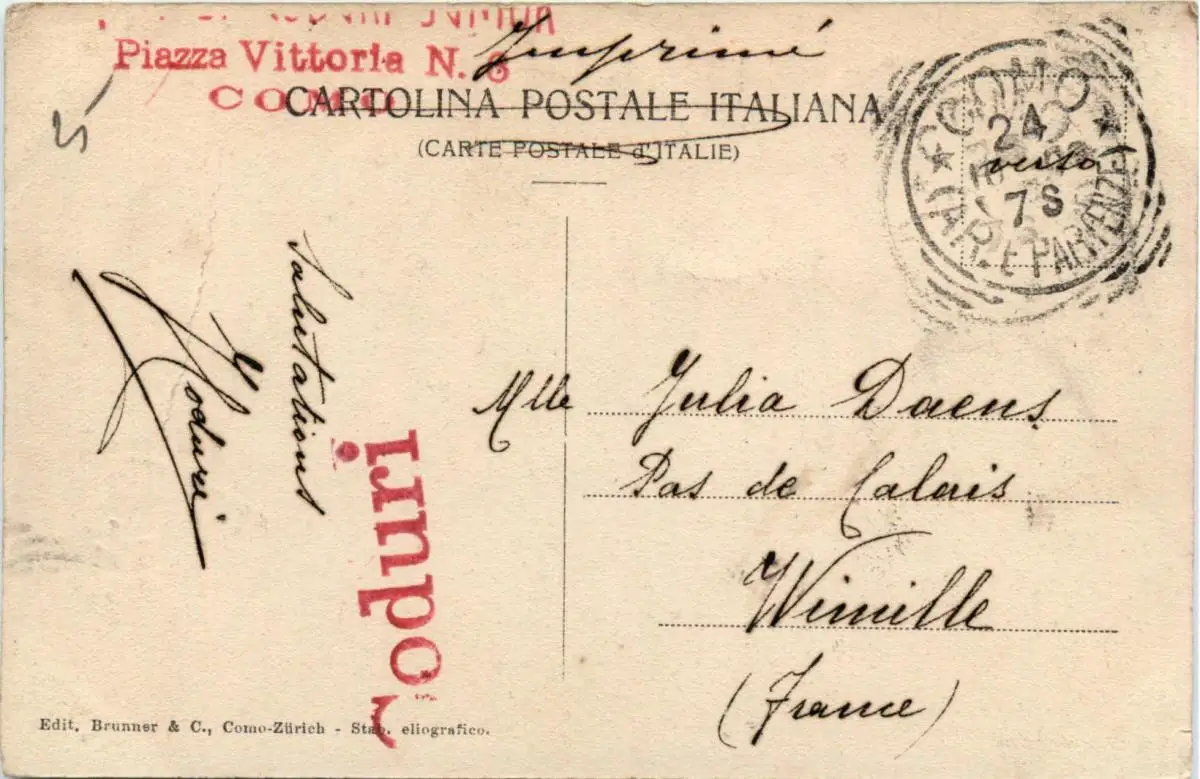 Piazza Vittoria N. 6
Imprimé
COMO
CARTOLINA POSTALE ITALIANA
(CARTE POSTALE d'ITALIE)
COMO
24
verso
7 S
(ARR. E PARTENZE)
25
Salutations
Coduri
Coduri
Mlle Julia Daens
Pas de Calais
Wimille
(France)
Edit. Brunner & C., Como-Zürich - Stab. eliografico.